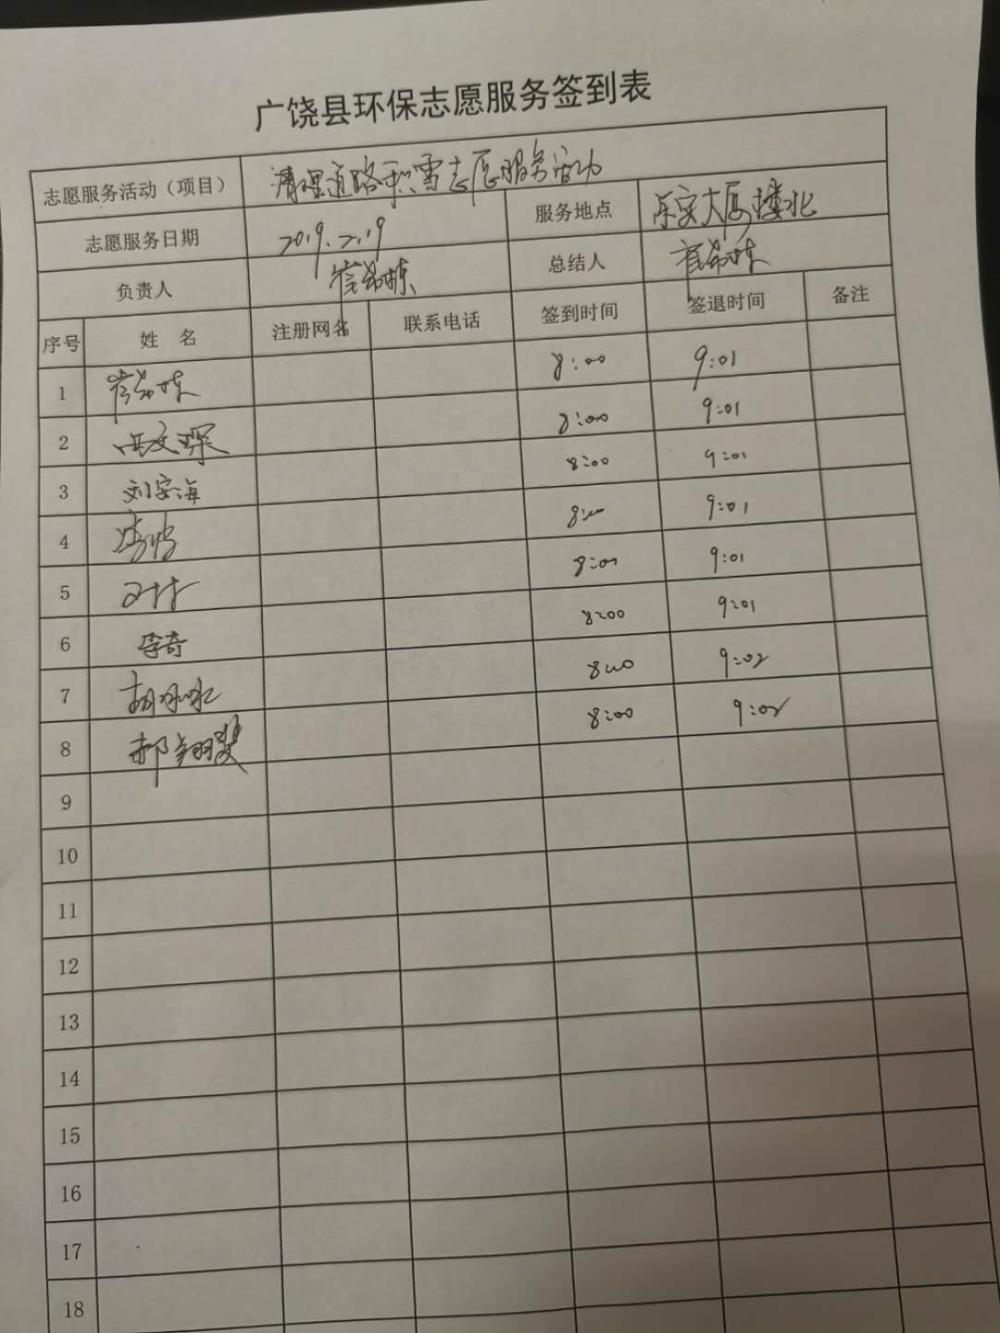 广饶县环保志愿服务签到表
志愿服务活动（项目） 清理道路积雪志愿服务活动
志愿服务日期 2019.2.19 服务地点 乐安大厦楼北
负责人 崔希栋 总结人 崔希栋
序号 姓 名 注册网名 联系电话 签到时间 签退时间 备注
1 崔希栋 8:00 9:01
2 8:00 9:01
3 刘安海 8:00 9:01
4 8:00 9:01
5 8:00 9:01
6 李奇 8:00 9:01
7 8:00 9:02
8 8:00 9:02
9
10
11
12
13
14
15
16
17
18